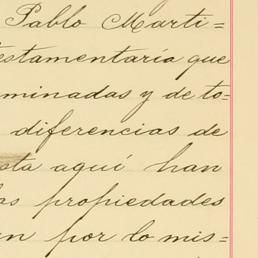 Pablo Marti=
estamentaría que
minadas y de to=
diferencias de
sta aquí han
as propiedades
n por lo mis=